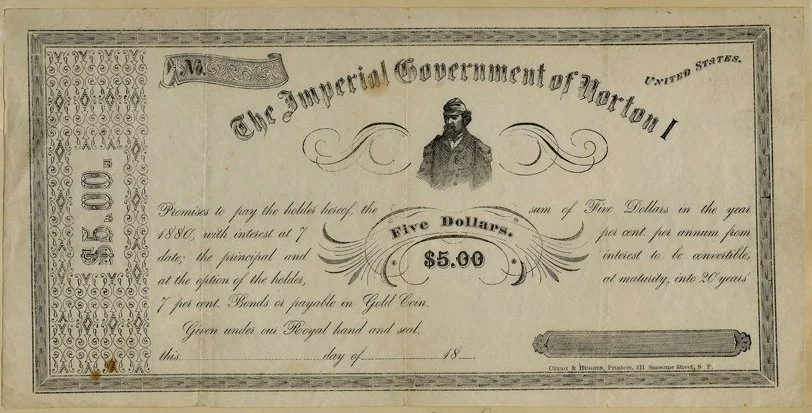 No.
The Imperial Government of Norton I
UNITED STATES.
$5.00
Promises to pay the holder hereof, the sum of Five Dollars in the year
1880, with interest at 7 per cent. per annum from
date; the principal and interest to be convertible,
at the option of the holder, at maturity, into 20 years'
7 per cent. Bonds or payable in Gold Coin.
Five Dollars.
$5.00
Given under our Royal hand and seal,
this day of 18
CUDDY & HUGHES, Printers, 511 Sansome Street, S. F.